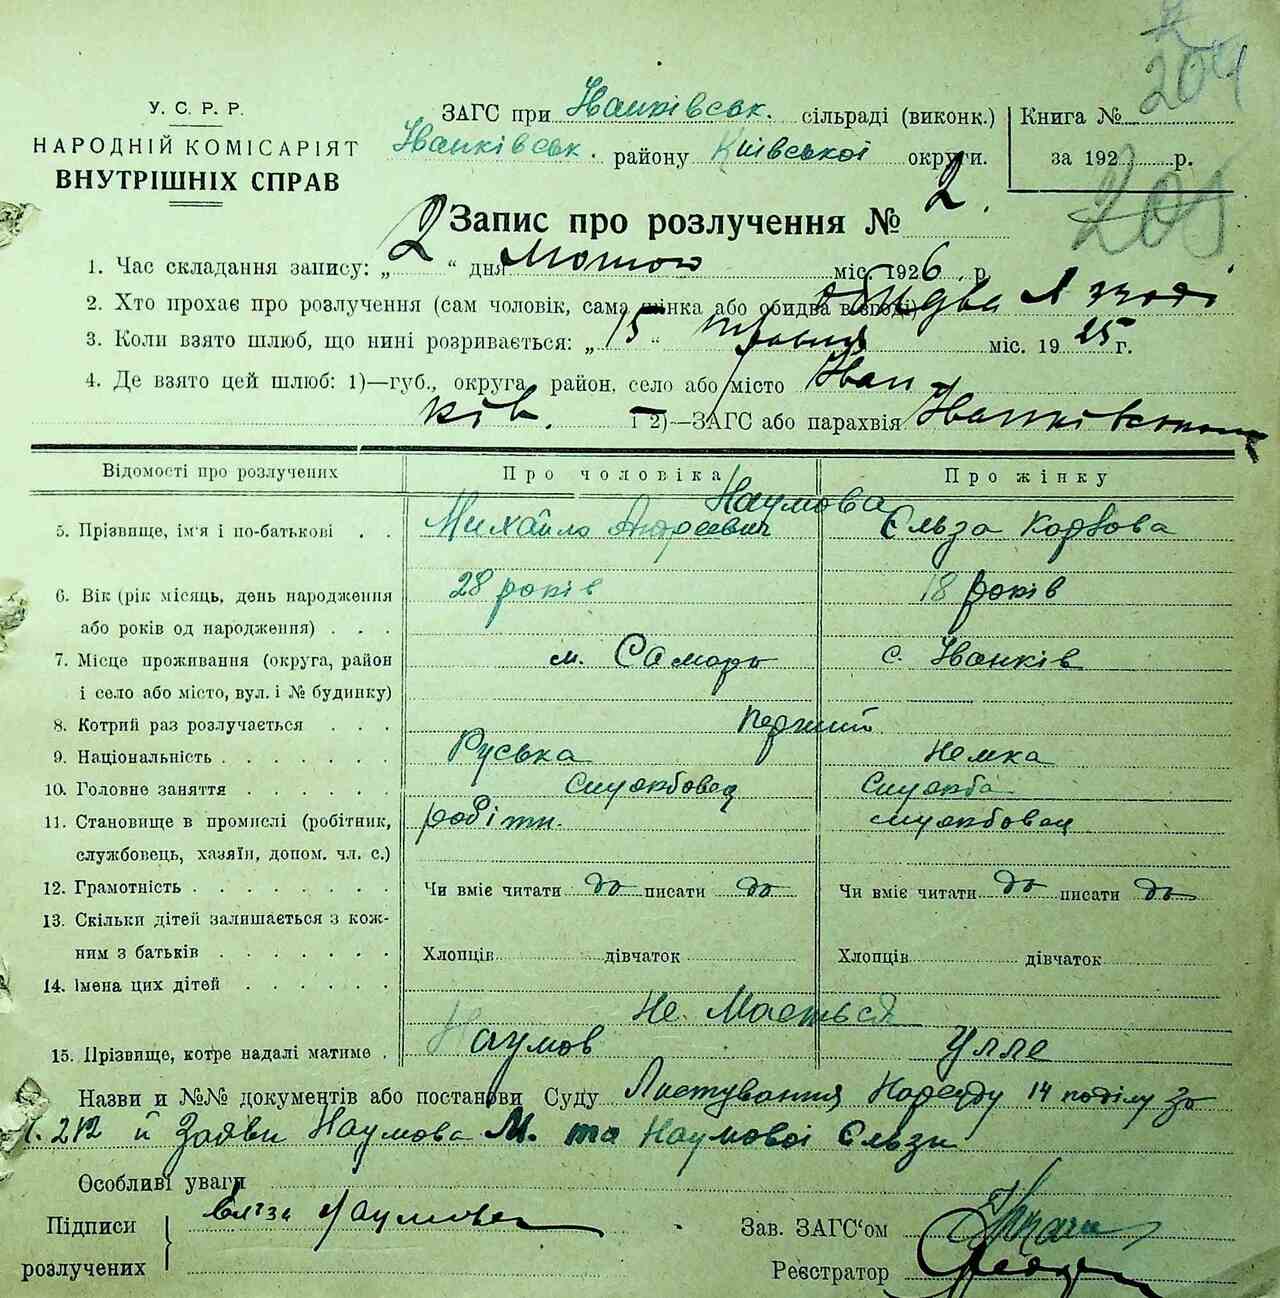 204
У. С. Р. Р.
НАРОДНІЙ КОМІСАРІЯТ
ВНУТРІШНІХ СПРАВ
ЗАГС при Іванківськ. сільраді (виконк.)
Іванківськ. району Київської округи.
Книга №
за 192 р.
205
Запис про розлучення № 2.
1. Час складання запису: „ 2 “ дня Лютого міс. 1926 р.
2. Хто прохає про розлучення (сам чоловік, сама жінка або обидва в згоді) обидва в згоді
3. Коли взято шлюб, що нині розривається: „ 15 “ травня міс. 19 25 г.
4. Де взято цей шлюб: 1)—губ., округа, район, село або місто Іван-
ків. і 2)—ЗАГС або парахвія Іванківськ
Відомості про розлучених Про чоловіка Про жінку
Наумова
5. Прізвище, ім'я і по-батькові . . Михайло Андреевич Єльза Карлова
6. Вік (рік місяць, день народження 28 років 18 років
або років од народження) . . .
7. Місце проживання (округа, район м. Самарь с. Іванків
і село або місто, вул. і № будинку)
8. Котрий раз розлучається . . . перший
9. Національність . . . . . . . Руська немка
10. Головне заняття . . . . . . службовец служба
11. Становище в промислі (робітник, робітн. службовец
службовець, хазяїн, допом. чл. с.)
12. Грамотність . . . . . . . . Чи вміє читати да писати да Чи вміє читати да писати да
13. Скільки дітей залишається з кож-
ним з батьків . . . . . . . Хлопців дівчаток Хлопців дівчаток
14. Імена цих дітей . . . . . .
Не Мається
15. Прізвище, котре надалі матиме . Наумов Улле
Назви и №№ документів або постанови Суду Листування Нарсуду 14 поділу за
№. 212 й Заяви Наумова М. та Наумової Єльзи
Особливі уваги
Підписи Ельза Наумова
розлучених
Зав. ЗАГС‘ом
Реєстратор